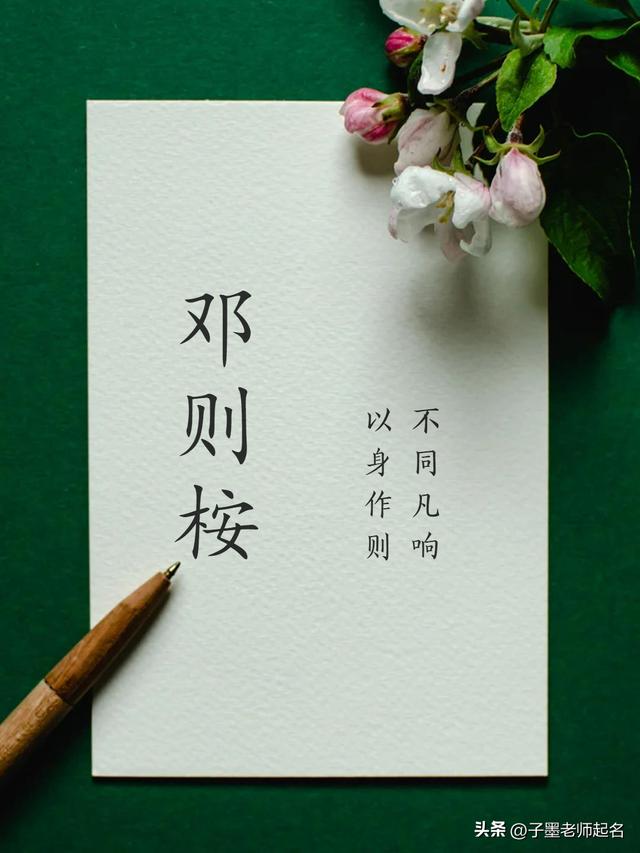 邓则桉
不同凡响
以身作则
头条 @子墨老师起名